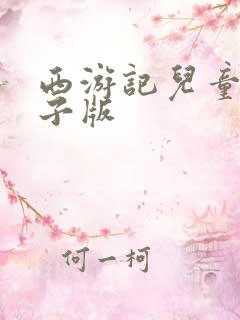 西游記兒童
子版
何一柯